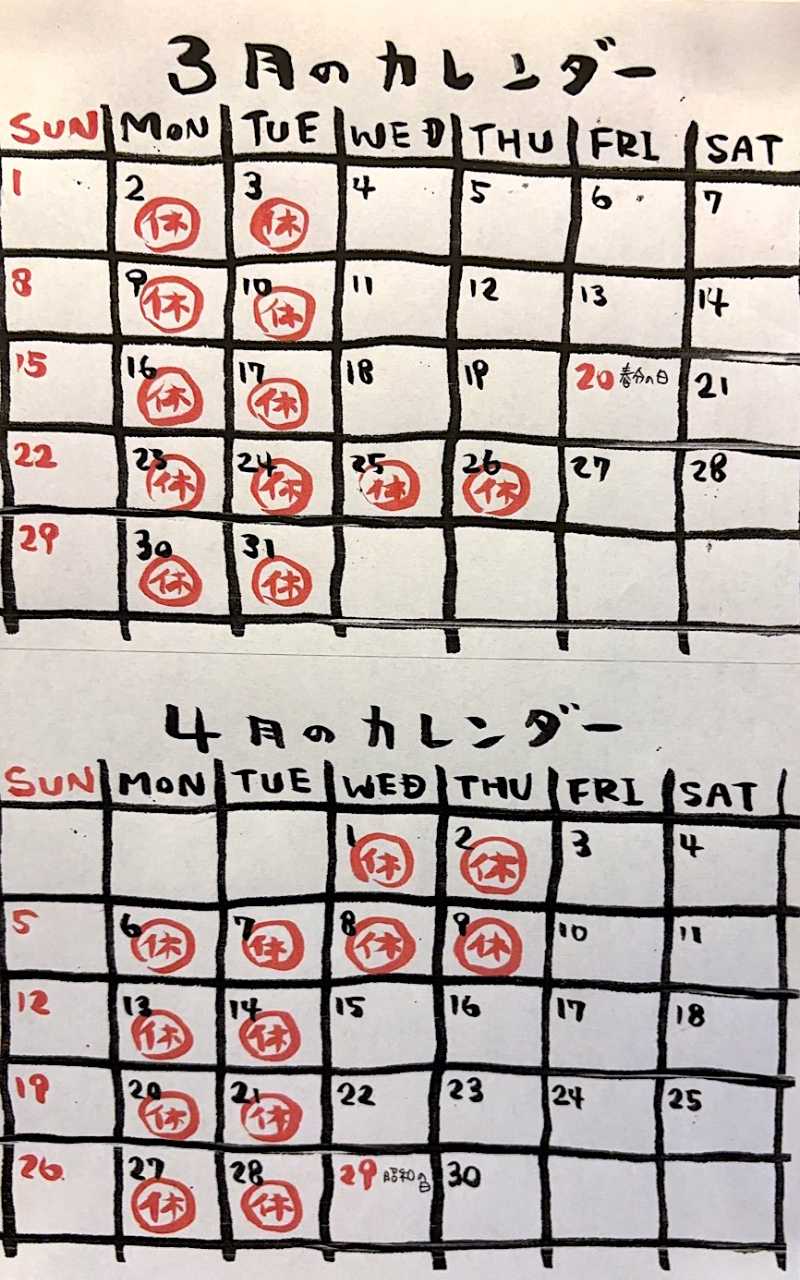 3月のカレンダー
SUN MON TUE WED THU FRI SAT
1 2 3 4 5 6 7
休 休
8 9 10 11 12 13 14
休 休
15 16 17 18 19 20 春分の日 21
休 休
22 23 24 25 26 27 28
休 休 休 休
29 30 31
休 休
4月のカレンダー
SUN MON TUE WED THU FRI SAT
1 2 3 4
休 休
5 6 7 8 9 10 11
休 休 休 休
12 13 14 15 16 17 18
休 休
19 20 21 22 23 24 25
休 休
26 27 28 29 昭和の日 30
休 休